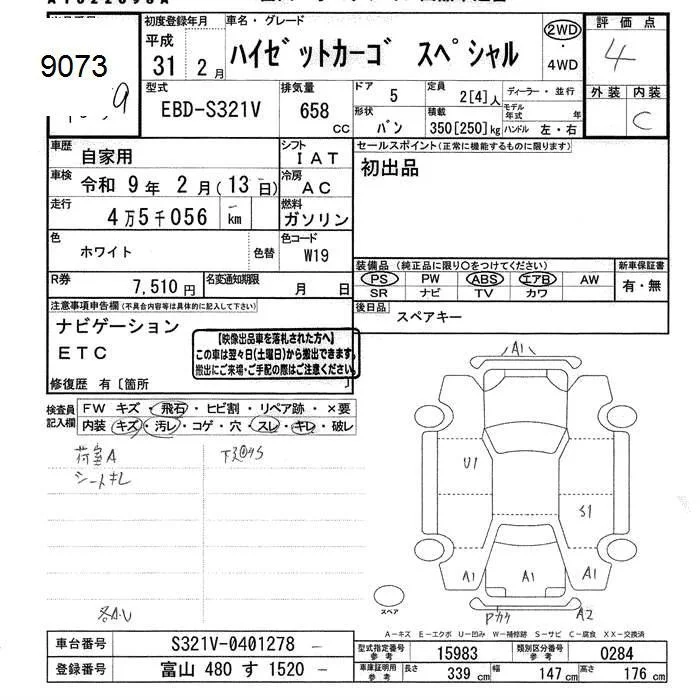 9073
9
初度登録年月
平成
31 2月
車名・グレード
ハイゼットカーゴ スペシャル
2WD
・
4WD
評価点
4
外装 内装
C
型式
EBD-S321V
排気量
658
CC
ドア 5
定員 2[4]人
形状 バン
積載 350[250]kg
ディーラー・並行
モデル年式 年
ハンドル 左・右
車歴 自家用
シフト IAT
車検 令和 9年 2月(13日)
冷房 AC
走行 4万5千056 km
燃料 ガソリン
色 ホワイト 色替
色コード W19
R券 7,510円
名変通知期限 月 日
セールスポイント(正常に機能するものに限ります)
初出品
装備品(純正品に限り〇をつけてください)
PS PW ABS エアB AW
SR ナビ TV カワ
新車保証書
有・無
後日品 スペアキー
注意事項申告欄(不具合内容等は具体的に記入して下さい)
ナビゲーション
ETC
【映像出品車を落札された方へ】
この車は翌々日(土曜日)から搬出できます。
搬出にご来場・ご手配の際はご注意ください。
修復歴 有〔箇所 〕
検査員記入欄
FW キズ・飛石・ヒビ割・リペア跡・×要
内装 キズ・汚レ・コゲ・穴・スレ・キレ・破レ
荷室A
シートキレ
各A・U
A1
U1
S1
A1
A1
A1
A2
スペア
A-キズ E-エクボ U-凹み W-補修跡 S-サビ C-腐食 XX-交換済
車台番号 S321V-0401278
登録番号 富山 480 す 1520
型式指定番号 参考 15983
類別区分番号 参考 0284
車庫証明用 参考 長さ 339 cm 幅 147 cm 高さ 176 cm